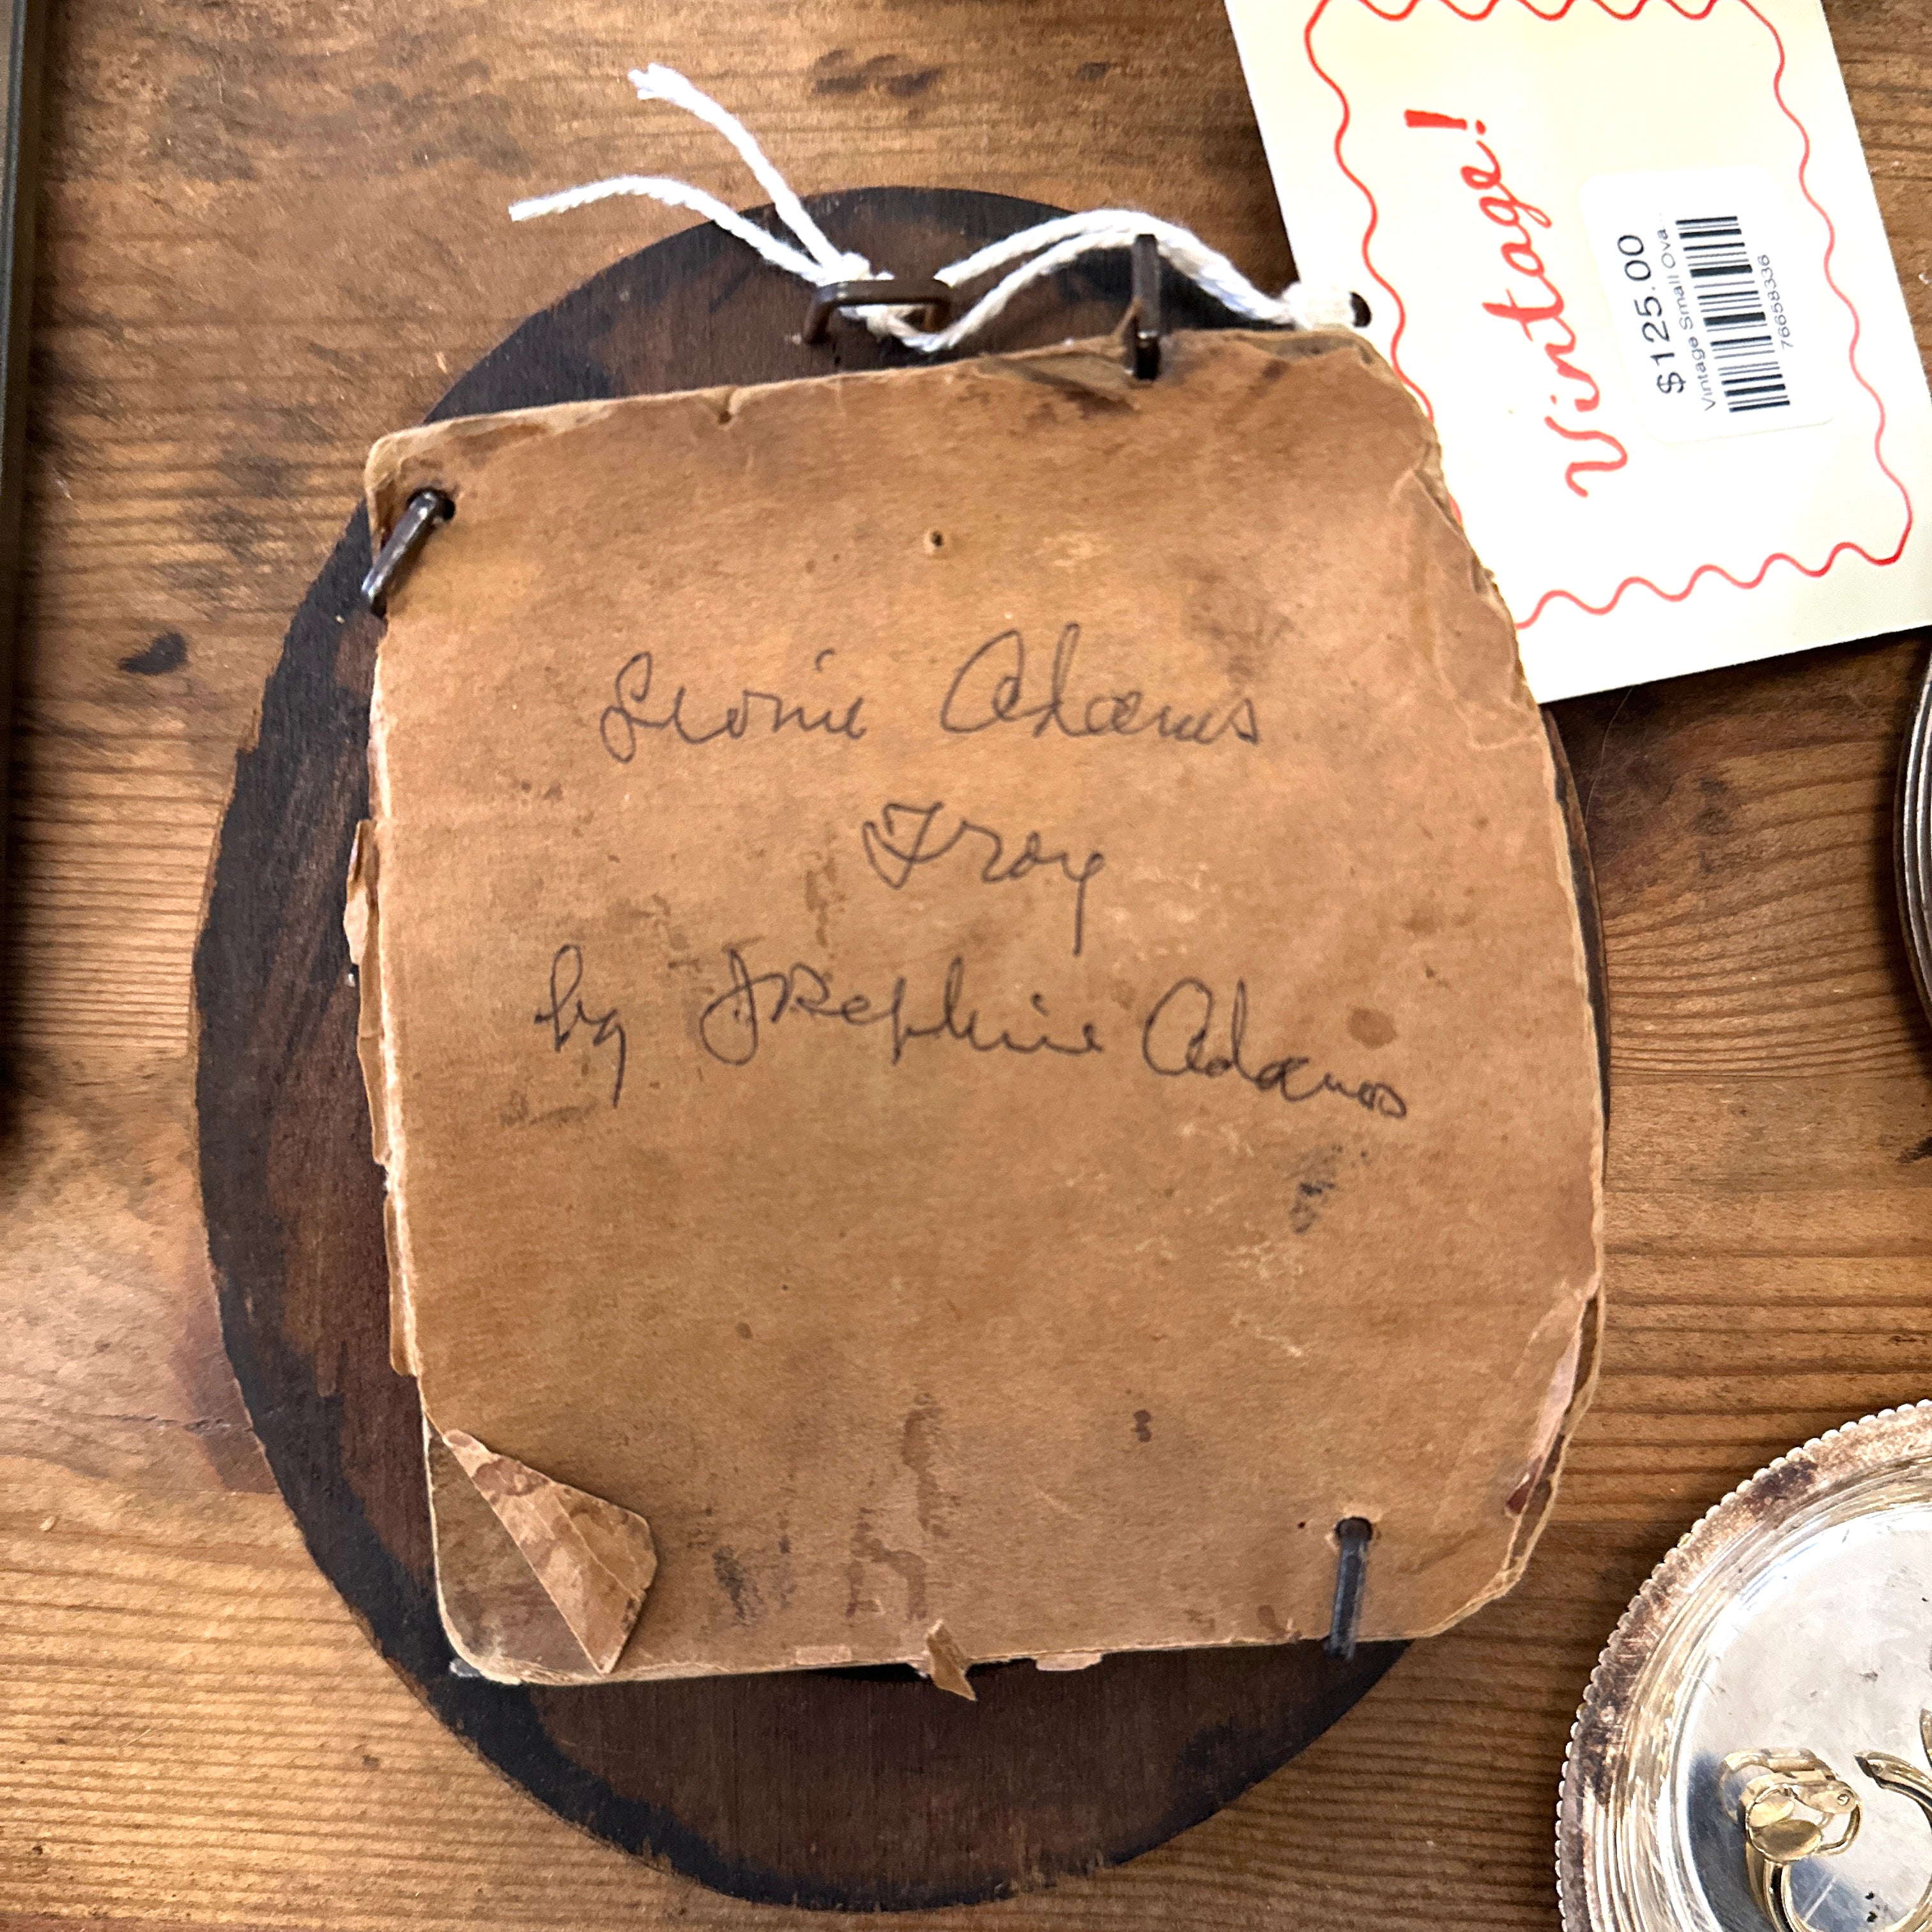 Leonie Adams
Troy
by Josephine Adams
Vintage!
$125.00
Vintage Small Ova..
76658336